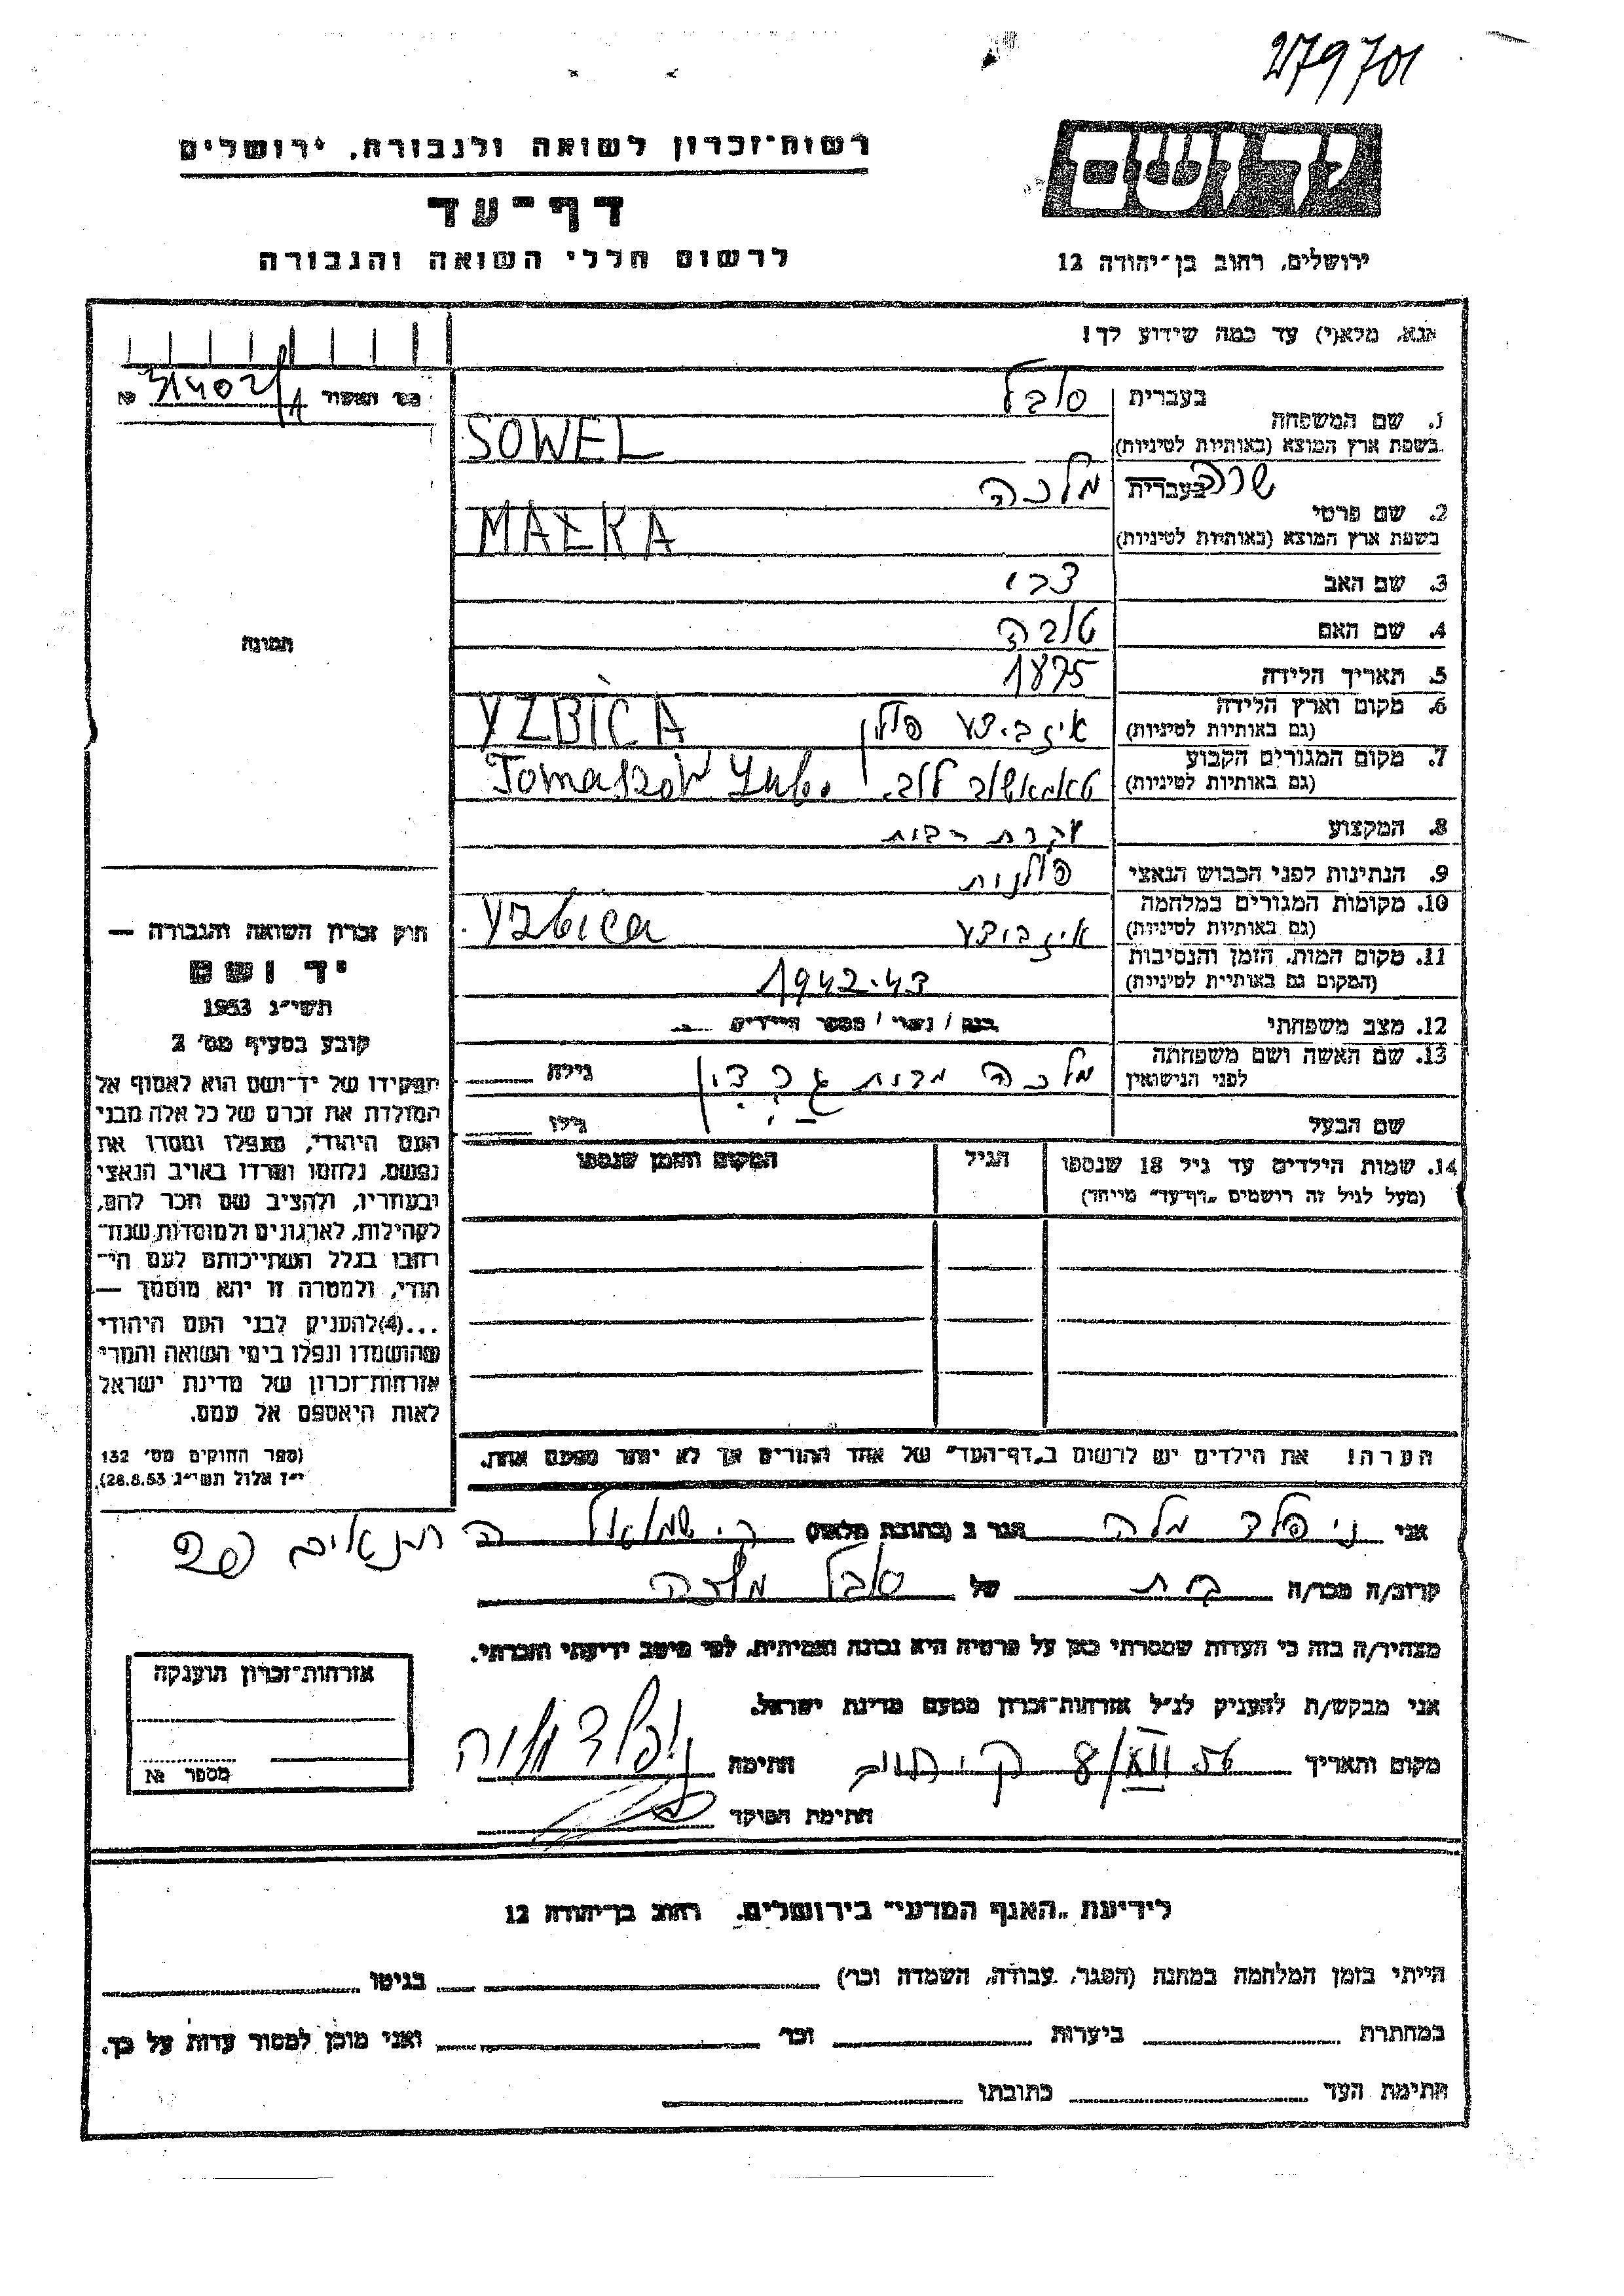 279701
רשות־זכרון לשואה ולגבורה, ירושלים
דף־עד
לרשום חללי השואה והגבורה
יד ושם
ירושלים, רחוב בן־יהודה 12
אנא, מלא(י) עד כמה שידוע לך!
מס׳ תאשור № 31402/A
1. שם המשפחה
בעברית סובל
בשפת ארץ המוצא (באותיות לטיניות) SOWEL
2. שם פרטי
בעברית שרה מלכה
בשפת ארץ המוצא (באותיות לטיניות) MAŁKA
3. שם האב צבי
4. שם האם טובה
5. תאריך הלידה 1875
6. מקום וארץ הלידה
(גם באותיות לטיניות) איזביצע פולין YZBICA
7. מקום המגורים הקבוע
(גם באותיות לטיניות) טאמאשוב לוב. Tomaszów Lub.
8. המקצוע עקרת הבית
9. הנתינות לפני הכבוש הנאצי פולנית
10. מקומות המגורים במלחמה
(גם באותיות לטיניות) איזביצע Yzbica
11. מקום המות, הזמן והנסיבות
(המקום גם באותיות לטיניות) 1942-43
12. מצב משפחתי
13. שם האשה ושם משפחתה
לפני הנישואין מלכה מבית גילה
שם הבעל גילו
14. שמות הילדים עד גיל 18 שנספו
(מעל לגיל זה רושמים „דף־עד” מיוחד)
הגיל
המקום והזמן שנספו
הערה! את הילדים יש לרשום ב„דף־העד” של אחד ההורים אך לא יותר מפעם אחת.
תמונה
חוק זכרון השואה והגבורה —
יד ושם
תשי״ג 1953
קובע בסעיף מס׳ 2
תפקידו של יד־ושם הוא לאסוף אל
המולדת את זכרם של כל אלה מבני
העם היהודי, שנפלו ומסרו את
נפשם, נלחמו ומרדו באויב הנאצי
ובעוזריו, ולהציב שם וזכר להם,
לקהילות, לארגונים ולמוסדות שנח־
רבו בגלל השתייכותם לעם הי־
הודי, ולמטרה זו יהא מוסמך —
...(4)להעניק לבני העם היהודי
שהושמדו ונפלו בימי השואה והמרי
אזרחות־זכרון של מדינת ישראל
לאות היאספם אל עמם.
(ספר החוקים מס׳ 132
י״ז אלול תשי״ג 28.8.53)
אני ניפלד מלה הגר ב (כתובת מלאה) ק. שמואל ה התנאים
קרוב/ה מכר/ה בת של סובל מלכה
מצהיר/ה בזה כי העדות שמסרתי כאן על פרטיה היא נכונה ואמיתית, לפי מיטב ידיעתי והכרתי.
אני מבקש/ת להעניק לנ״ל אזרחות־זכרון מטעם מדינת ישראל.
מקום ותאריך 8/XII 56 חתימה
חתימת הפוקד
אזרחות־זכרון הוענקה
מספר №
לידיעת „האגף המדעי” בירושלים, רחוב בן־יהודה 12
הייתי בזמן המלחמה במחנה (הסגר, עבודה, השמדה וכו׳) בגיטו
במחתרת ביערות וכו׳ ואני מוכן למסור עדות על כך.
חתימת העד כתובתו